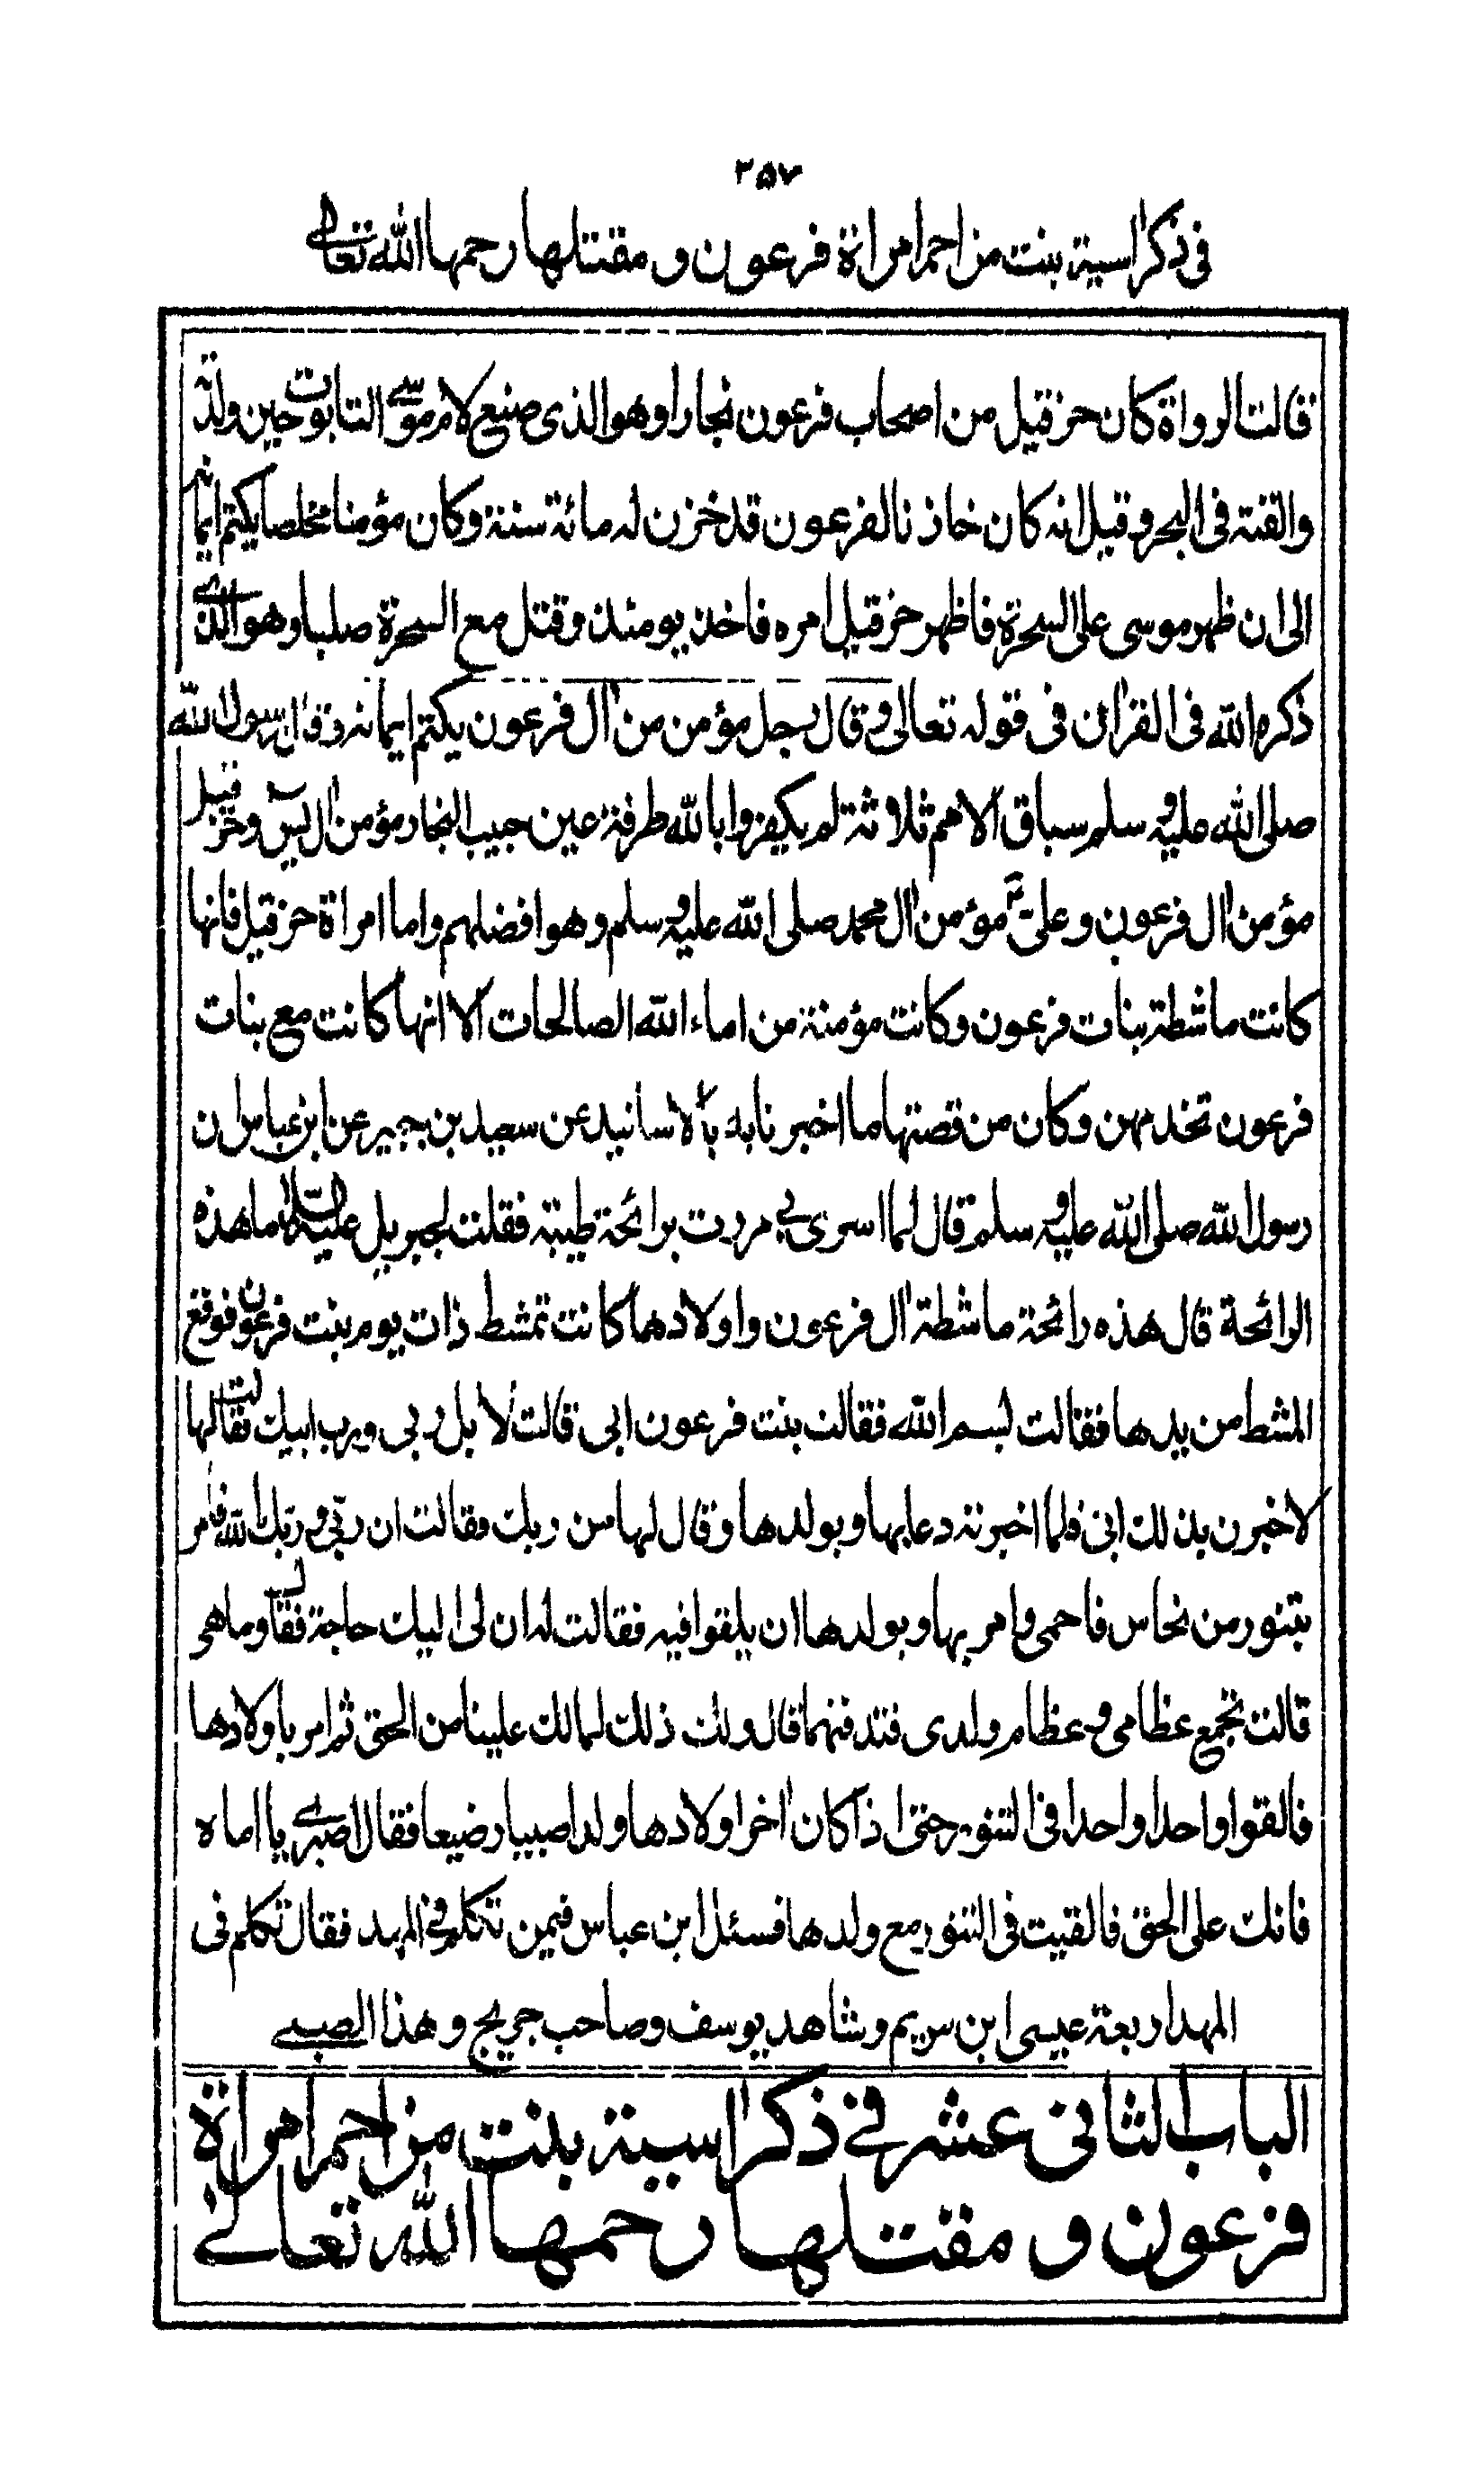 ٣٥٧
فى ذكر اٰسية بنت مزاحم امراة فرعون و مقتلها رحمها الله تعالى
قالت الرواة كان حزقيل من اصحاب فرعون نجارا وهو الذى صنع لام موسى التابوت حين ولدته
والقته فى البحر وقيل انه كان خازنا لفرعون قد خزن له مائة سنة وكان مؤمنا مخلصا يكتم ايمانه
الى ان ظهر موسى على السحرة فاظهر حزقيل امره فاخذ يومئذ وقتل مع السحرة صلبا وهو الذى
ذكره الله فى القراٰن فى قوله تعالى وقال رجل مؤمن من اٰل فرعون يكتم ايمانه وقال رسول الله
صلى الله عليه وسلم سباق الامم ثلاثة لم يكفروا بالله طرفة عين حبيب النجار مؤمن اٰل يٰسٓ وحزقيل
مؤمن اٰل فرعون وعلىّ مؤمن اٰل محمد صلى الله عليه وسلم وهو افضلهم واما امراة حزقيل فانها
كانت ماشطة بنات فرعون وكانت مؤمنة من اماء الله الصالحات الا انها كانت مع بنات
فرعون تخدمهن وكان من قصتها ما اخبرنا به بالاسانيد عن سعيد بن جبير عن ابن عباس ان
رسول الله صلى الله عليه وسلم قال لما اسرى بى مررت برائحة طيبة فقلت لجبريل عليه السلام ما هذه
الرائحة قال هذه رائحة ماشطة اٰل فرعون واولادها كانت تمشط ذات يوم بنت فرعون فوقع
المشط من يدها فقالت بسم الله فقالت بنت فرعون ابى قالت لا بل ربى ورب ابيك فقالت لها
لاخبرن بذلك ابى فلما اخبرته دعا بها وبولدها وقال لها من ربك فقالت ان ربّى وربّك الله فامر
بتنور من نحاس فاحمى وامر بها وبولدها ان يلقوا فيه فقالت له ان لى اليك حاجة فقال وما هى
قالت تجمع عظامى وعظام ولدى فتدفنهما قال ولك ذلك لما لك علينا من الحق ثم امر باولادها
فالقوا واحدا واحدا فى التنور حتى اذا كان اٰخر اولادها ولدا صبيا رضيعا فقال اصبرى يا اماه
فانك على الحق فالقيت فى التنور مع ولدها فسئل ابن عباس فيمن تكلم فى المهد فقال تكلم فى
المهد اربعة عيسى ابن مريم وشاهد يوسف وصاحب جريج وهذا الصبى
الباب الثانى عشر فى ذكر اٰسية بنت مزاحم امراة
فرعون و مقتلها رحمها الله تعالى